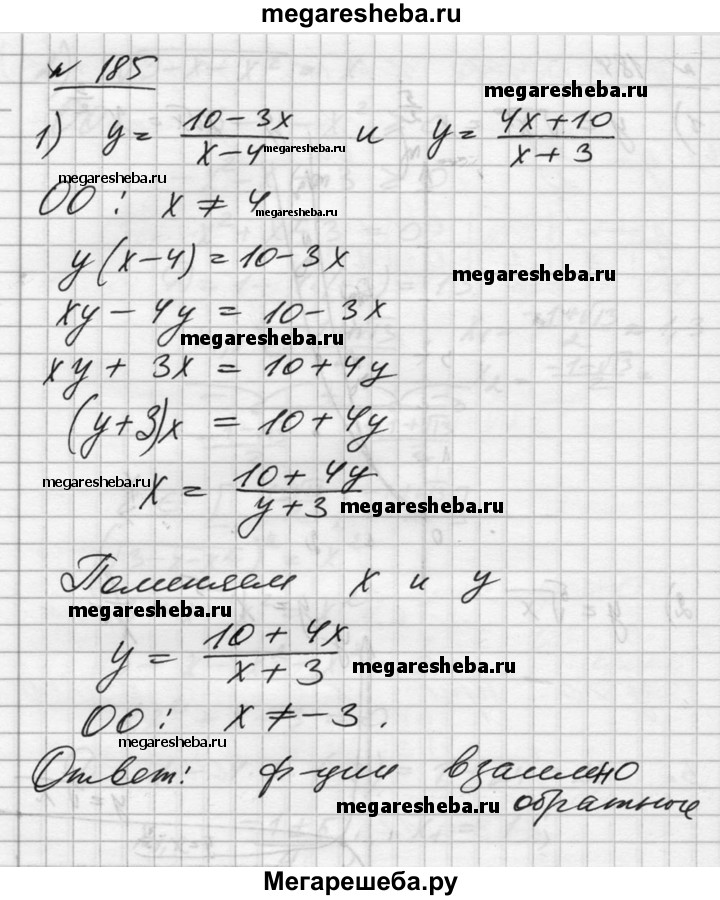 megaresheba.ru
№ 185
megaresheba.ru
1) y = (10 - 3x)/(x - 4) и y = (4x + 10)/(x + 3)
megaresheba.ru
megaresheba.ru
ОО: x ≠ 4
megaresheba.ru
y(x - 4) = 10 - 3x
megaresheba.ru
xy - 4y = 10 - 3x
megaresheba.ru
xy + 3x = 10 + 4y
(y + 3)x = 10 + 4y
megaresheba.ru
x = (10 + 4y)/(y + 3)
megaresheba.ru
Поменяем x и y
megaresheba.ru
y = (10 + 4x)/(x + 3)
megaresheba.ru
ОО: x ≠ -3.
megaresheba.ru
Ответ: ф-ции взаимно
megaresheba.ru
обратные
Мегарешеба.ру